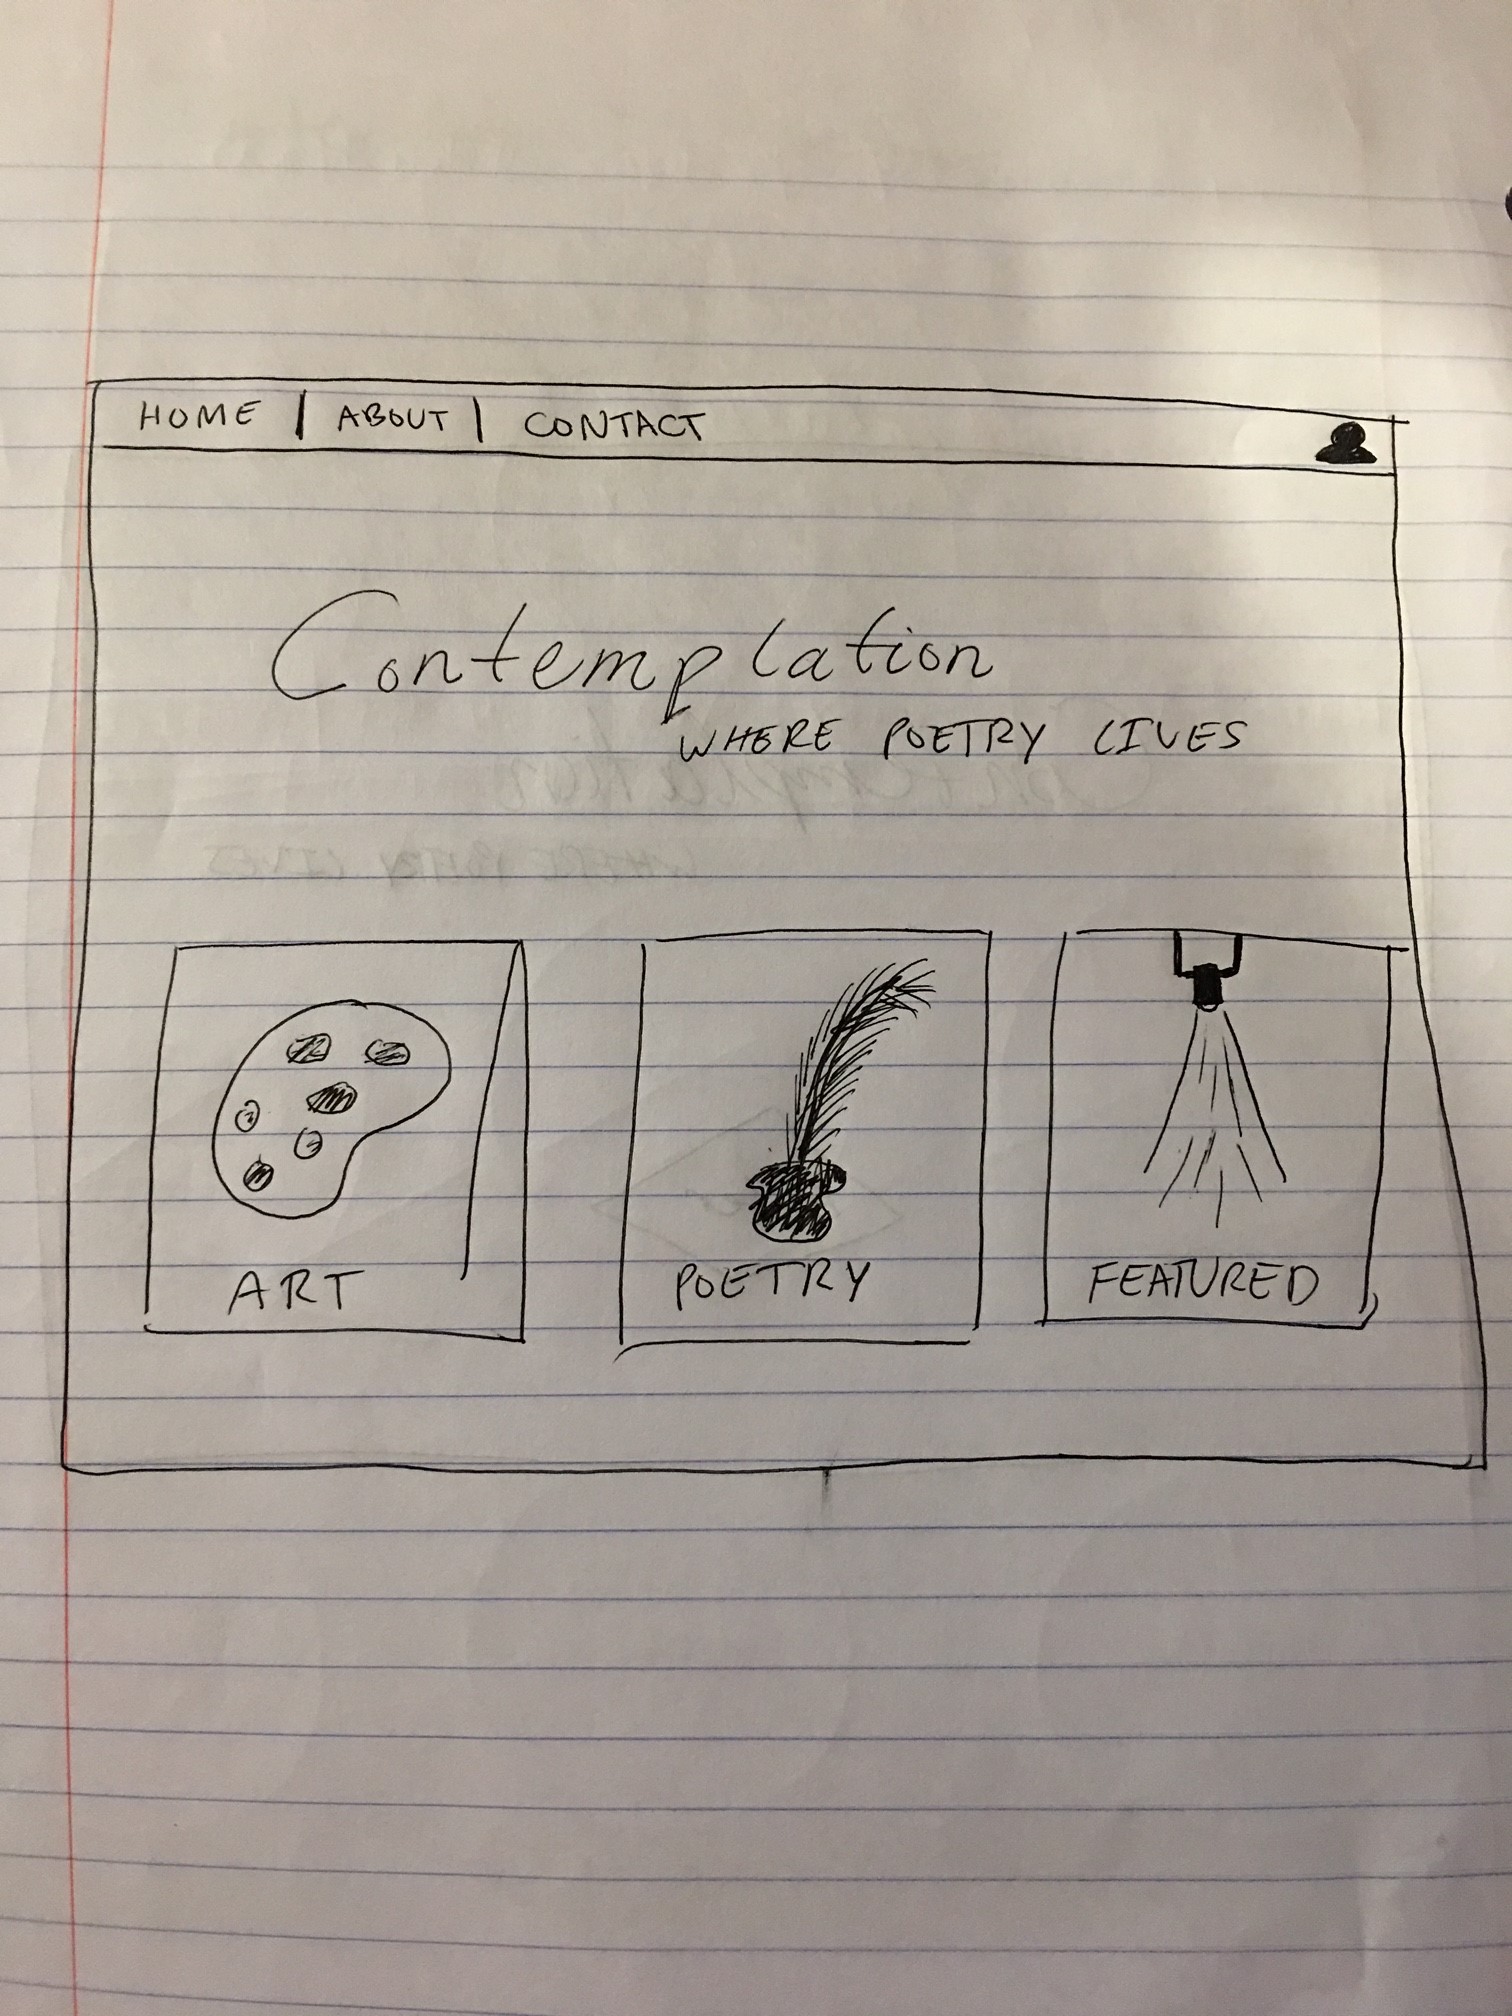 HOME | ABOUT | CONTACT
Contemplation
WHERE POETRY LIVES
ART
POETRY
FEATURED